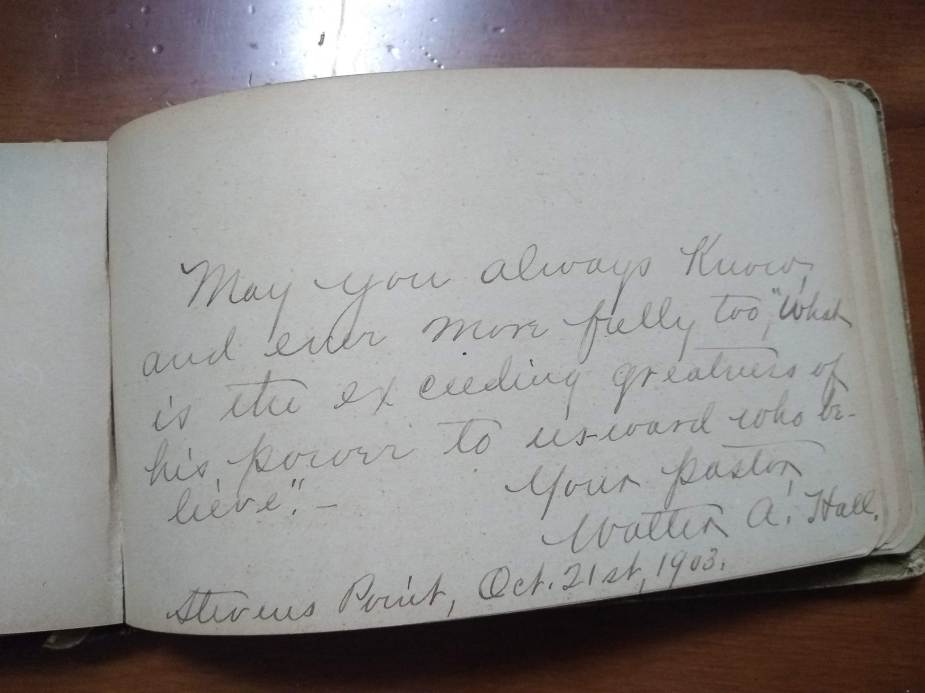 May you always know,
and ever more fully too, "What
is the exceeding greatness of
his power to us-ward who be-
lieve". –
Your pastor,
Walter A. Hall.
Stevens Point, Oct. 21st, 1903.